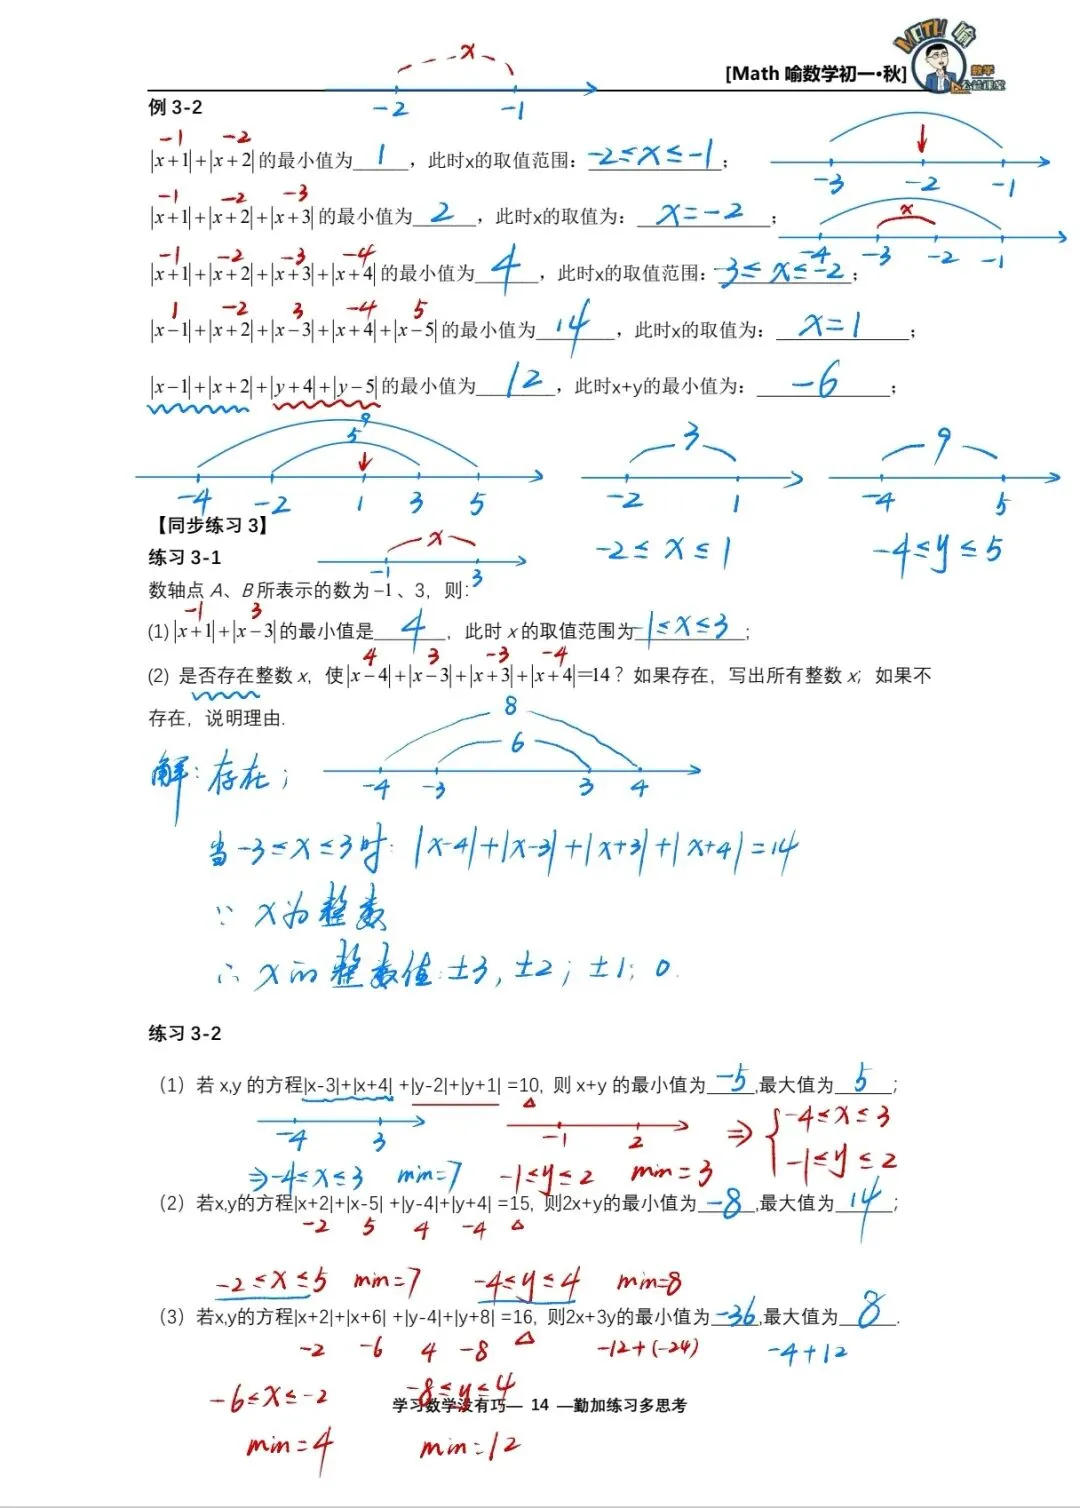 x
-2 -1
[Math 喻数学初一·秋]
MATH 喻
数学
公益课堂
例 3-2
-1 -2
|x+1|+|x+2|的最小值为 1 ，此时x的取值范围： -2≤x≤-1 ；
-3 -2 -1
-1 -2 -3
|x+1|+|x+2|+|x+3|的最小值为 2 ，此时x的取值为： x=-2 ；
x
-4 -3 -2 -1
-1 -2 -3 -4
|x+1|+|x+2|+|x+3|+|x+4|的最小值为 4 ，此时x的取值范围： -3≤x≤-2 ；
1 -2 3 -4 5
|x-1|+|x+2|+|x-3|+|x+4|+|x-5|的最小值为 14 ，此时x的取值为： x=1 ；
|x-1|+|x+2|+|y+4|+|y-5|的最小值为 12 ，此时x+y的最小值为： -6 ；
9
5
-4 -2 1 3 5
3
-2 1
9
-4 5
-2≤x≤1
-4≤y≤5
【同步练习 3】
练习 3-1
x
-1 3
数轴点 A、B 所表示的数为 -1 、3，则：
-1 3
(1) |x+1|+|x-3|的最小值是 4 ，此时 x 的取值范围为 -1≤x≤3 ；
4 3 -3 -4
(2) 是否存在整数 x，使|x-4|+|x-3|+|x+3|+|x+4|=14？如果存在，写出所有整数 x；如果不
存在，说明理由.
8
6
-4 -3 3 4
解：存在；
当-3≤x≤3时：|x-4|+|x-3|+|x+3|+|x+4|=14
∵ x为整数
∴ x的整数值：±3，±2；±1；0.
练习 3-2
（1）若 x,y 的方程|x-3|+|x+4| +|y-2|+|y+1| =10，则 x+y 的最小值为 -5 ,最大值为 5 ；
-4 3
-1 2
⇒ {-4≤x≤3
-1≤y≤2
⇒-4≤x≤3 min=7 -1≤y≤2 min=3
（2）若x,y的方程|x+2|+|x-5| +|y-4|+|y+4| =15，则2x+y的最小值为 -8 ,最大值为 14 ；
-2 5 4 -4
-2≤x≤5 min=7 -4≤y≤4 min=8
（3）若x,y的方程|x+2|+|x+6| +|y-4|+|y+8| =16，则2x+3y的最小值为 -36 ,最大值为 8 .
-2 -6 4 -8 -12+(-24) -4+12
-6≤x≤-2 -8≤y≤4
学习数学没有巧— 14 —勤加练习多思考
min=4 min=12